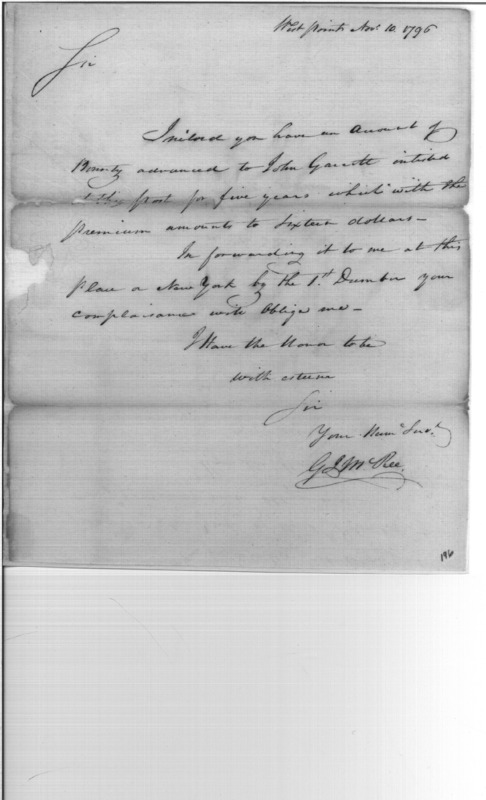 West Point Nov. 10. 1796
Sir
Inclosed you have an Account of
Bounty advanced to John Garrett inlisted
at this post for five years which with the
premium amounts to Sixteen dollars –
In forwarding it to me at this
Place or New York by the 1st. December your
complaisance will Oblige me –
I Have the Honor to be
with esteem
Sir
Your Hum. Serv.t
G J McRee
196